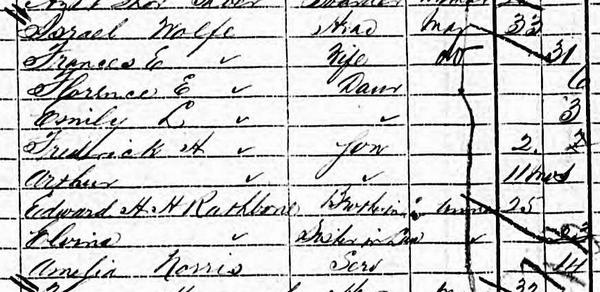 Israel Wolfe Head Mar 33
Frances E ✓ Wife do 31
Florence E ✓ Daur 6
Emily L ✓ ✓ 3
Frederick A ✓ Son 2
Arthur ✓ ✓ 11 mos
Edward H H Rathbone Brother in Unmar 25
Elvina ✓ Sister in Law ✓
Amelia Norris Serv 14